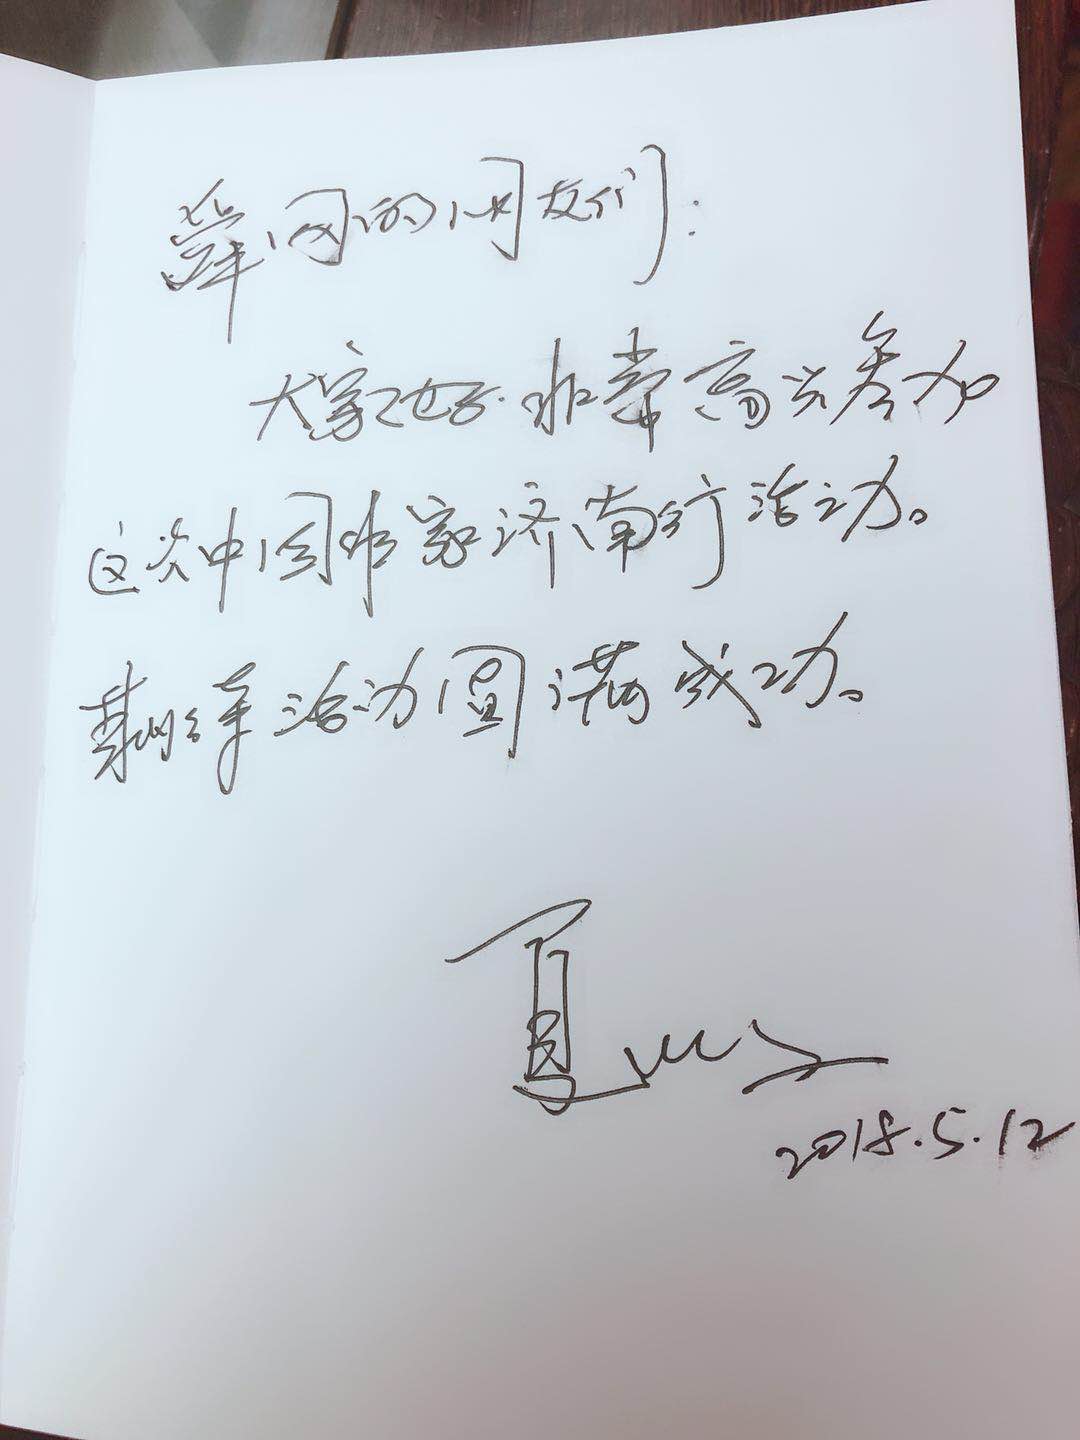 舜网的网友们：
大家好·非常高兴参加
这次中国作家济南行活动。
期待活动圆满成功。
2018.5.12